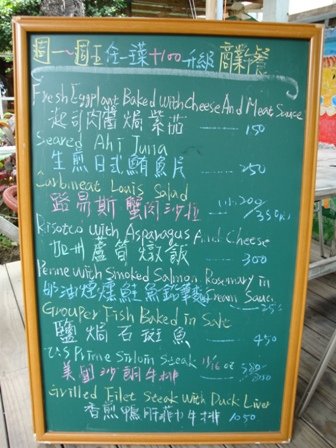 週一~週五 任一菜+100升級 商業餐
Fresh Eggplant Baked with Cheese And Meat Sauce
起司肉醬焗紫茄 150
Seared Ahi Tuna
生煎日式鮪魚片 250
Crabmeat Louis Salad
路易斯蟹肉沙拉 200/350
Risotto with Asparagus And Cheese
加州蘆筍燉飯 300
Penne with Smoked Salmon Rosemary in Cream Sauce
奶油煙燻鮭魚 250
Grouper Fish Baked in Salt
鹽焗石斑魚 450
U.S Prime Sirloin Steak 16oz
美國沙朗牛排
Grilled Filet Steak with Duck Liver
香煎鴨肝菲力牛排 1050